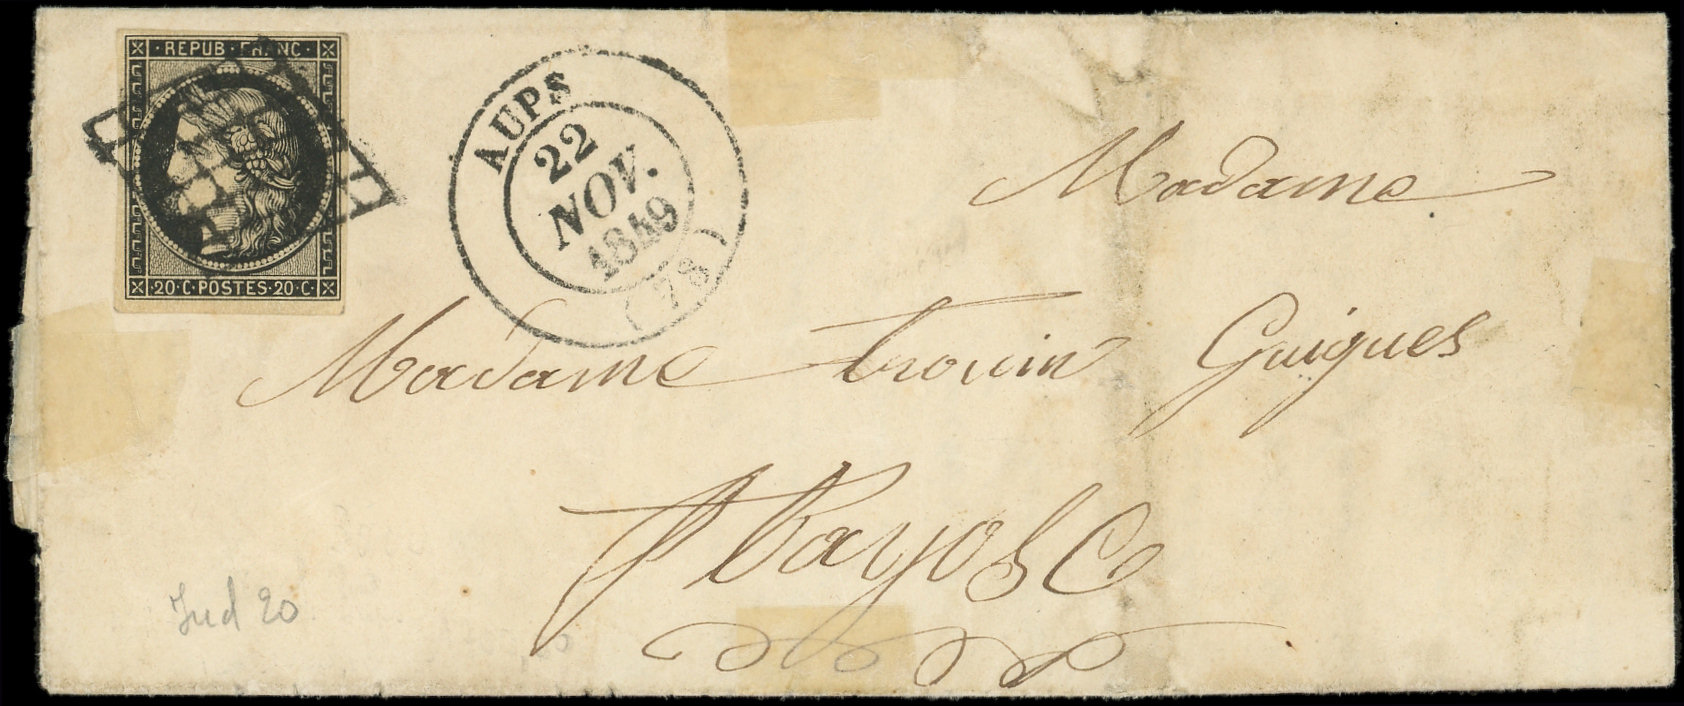 · REPUB · FRANC ·
· 20 · C · POSTES · 20 · C ·
AUPS
22
NOV.
1849
(78)
Madame
Madame Trouin Guigues
Ind 20